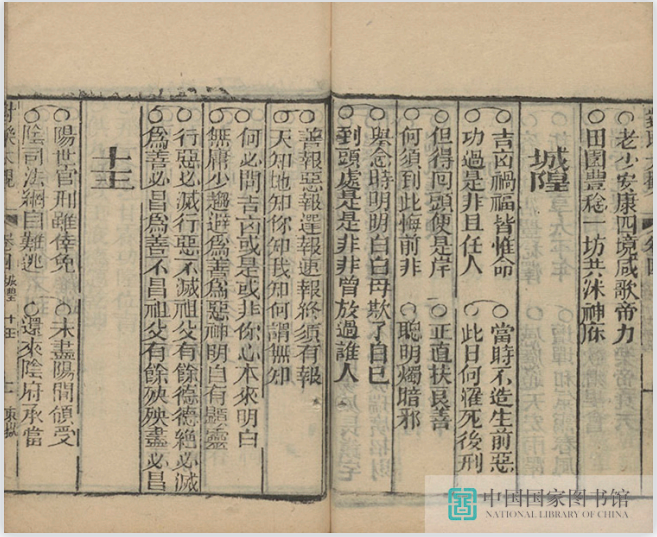 ○老少安康四境咸歌帝力
○田園豐稔一坊共沐神庥
城隍
○吉凶禍福皆惟命　○當時不造生前惡
○功過是非且任人　○此日何罹死後刑
○但得囘頭便是岸　○正直扶良善
○何須到此悔前非　○聰明燭暗邪
○舉念時明明白白毋欺了自已
○到頭處是是非非曾放過誰人
○善報惡報遲報速報終須有報
○天知地知你知我知何謂無知
○何必問吉凶或是或非你心本來明白
○無庸少趨避爲善爲惡神明自有靈
○行惡必滅行惡不滅祖父有餘德德絶必滅
○爲善必昌爲善不昌祖父有餘殃殃盡必昌
十王
○陽世官刑雖倖免　○未盡陽間領受
○陰司法網自難逃　○還來陰府承當
大觀　卷四　城隍　十王　東嶽
中国国家图书馆
NATIONAL LIBRARY OF CHINA